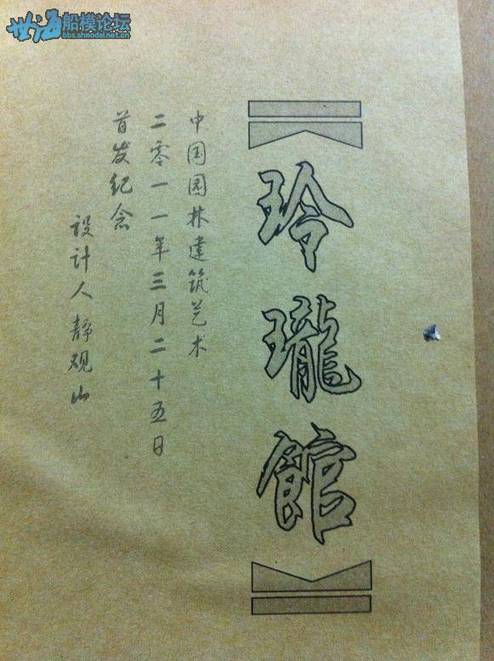 世海船模论坛
bbs.shmodel.net.cn
玲瓏館
中国园林建筑艺术
二零一一年三月二十五日
首发纪念
设计人静观山